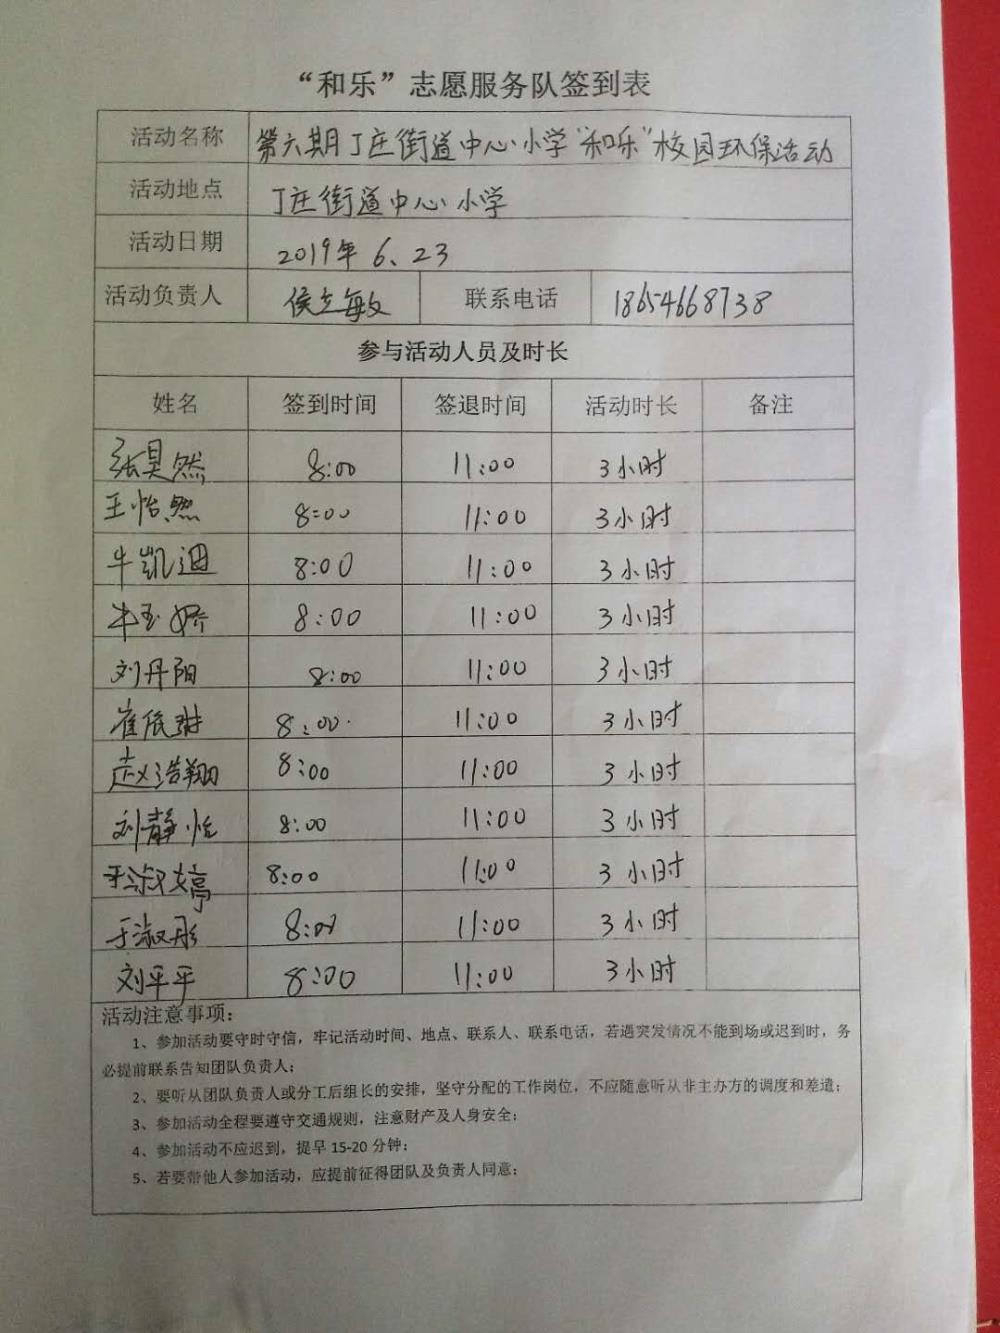 “和乐”志愿服务队签到表
活动名称 第六期丁庄街道中心小学“和乐”校园环保活动
活动地点 丁庄街道中心小学
活动日期 2019年 6、23
活动负责人 侯立敏 联系电话 18654668738
参与活动人员及时长
姓名 签到时间 签退时间 活动时长 备注
张昊然 8:00 11:00 3小时
王怡然 8:00 11:00 3小时
牛凯迪 8:00 11:00 3小时
牛玉娇 8:00 11:00 3小时
刘丹阳 8:00 11:00 3小时
崔依琳 8:00 11:00 3小时
赵浩翔 8:00 11:00 3小时
刘静怡 8:00 11:00 3小时
于淑婷 8:00 11:00 3小时
于淑彤 8:00 11:00 3小时
刘平平 8:00 11:00 3小时
活动注意事项：
1、参加活动要守时守信，牢记活动时间、地点、联系人、联系电话，若遇突发情况不能到场或迟到时，务
必提前联系告知团队负责人；
2、要听从团队负责人或分工后组长的安排，坚守分配的工作岗位，不应随意听从非主办方的调度和差遣；
3、参加活动全程要遵守交通规则，注意财产及人身安全；
4、参加活动不应迟到，提早 15-20 分钟；
5、若要带他人参加活动，应提前征得团队及负责人同意；